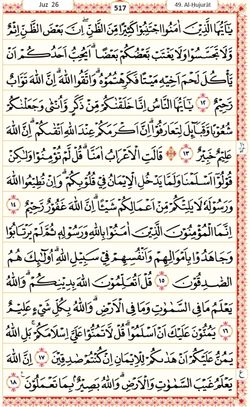 Juz 26
517
49. Al-Hujurât
يٰٓاَيُّهَا الَّذِيْنَ اٰمَنُوا اجْتَنِبُوْا كَثِيْرًا مِّنَ الظَّنِّ ۖ اِنَّ بَعْضَ الظَّنِّ اِثْمٌ
وَّلَا تَجَسَّسُوْا وَلَا يَغْتَبْ بَّعْضُكُمْ بَعْضًا ؕ اَيُحِبُّ اَحَدُكُمْ اَنْ
يَّاْكُلَ لَحْمَ اَخِيْهِ مَيْتًا فَكَرِهْتُمُوْهُ ؕ وَاتَّقُوا اللّٰهَ ؕ اِنَّ اللّٰهَ تَوَّابٌ
رَّحِيْمٌ ۝۱۲ يٰٓاَيُّهَا النَّاسُ اِنَّا خَلَقْنٰكُمْ مِّنْ ذَكَرٍ وَّاُنْثٰى وَجَعَلْنٰكُمْ
شُعُوْبًا وَّقَبَآئِلَ لِتَعَارَفُوْا ؕ اِنَّ اَكْرَمَكُمْ عِنْدَ اللّٰهِ اَتْقٰىكُمْ ؕ اِنَّ اللّٰهَ
عَلِيْمٌ خَبِيْرٌ ۝۱۳ قَالَتِ الْاَعْرَابُ اٰمَنَّا ؕ قُلْ لَّمْ تُؤْمِنُوْا وَلٰكِنْ
قُوْلُوْٓا اَسْلَمْنَا وَلَمَّا يَدْخُلِ الْاِيْمَانُ فِيْ قُلُوْبِكُمْ ؕ وَاِنْ تُطِيْعُوا اللّٰهَ
وَرَسُوْلَهٗ لَا يَلِتْكُمْ مِّنْ اَعْمَالِكُمْ شَيْـًٔا ؕ اِنَّ اللّٰهَ غَفُوْرٌ رَّحِيْمٌ ۝۱۴
اِنَّمَا الْمُؤْمِنُوْنَ الَّذِيْنَ اٰمَنُوْا بِاللّٰهِ وَرَسُوْلِهٖ ثُمَّ لَمْ يَرْتَابُوْا
وَجَاهَدُوْا بِاَمْوَالِهِمْ وَاَنْفُسِهِمْ فِيْ سَبِيْلِ اللّٰهِ ؕ اُولٰٓئِكَ هُمُ
الصّٰدِقُوْنَ ۝۱۵ قُلْ اَتُعَلِّمُوْنَ اللّٰهَ بِدِيْنِكُمْ ؕ وَاللّٰهُ
يَعْلَمُ مَا فِي السَّمٰوٰتِ وَمَا فِي الْاَرْضِ ؕ وَاللّٰهُ بِكُلِّ شَيْءٍ عَلِيْمٌ ۝۱۶
يَمُنُّوْنَ عَلَيْكَ اَنْ اَسْلَمُوْا ؕ قُلْ لَّا تَمُنُّوْا عَلَيَّ اِسْلَامَكُمْ ۚ بَلِ اللّٰهُ
يَمُنُّ عَلَيْكُمْ اَنْ هَدٰىكُمْ لِلْاِيْمَانِ اِنْ كُنْتُمْ صٰدِقِيْنَ ۝۱۷ اِنَّ اللّٰهَ
يَعْلَمُ غَيْبَ السَّمٰوٰتِ وَالْاَرْضِ ؕ وَاللّٰهُ بَصِيْرٌۢ بِمَا تَعْمَلُوْنَ ۝۱۸